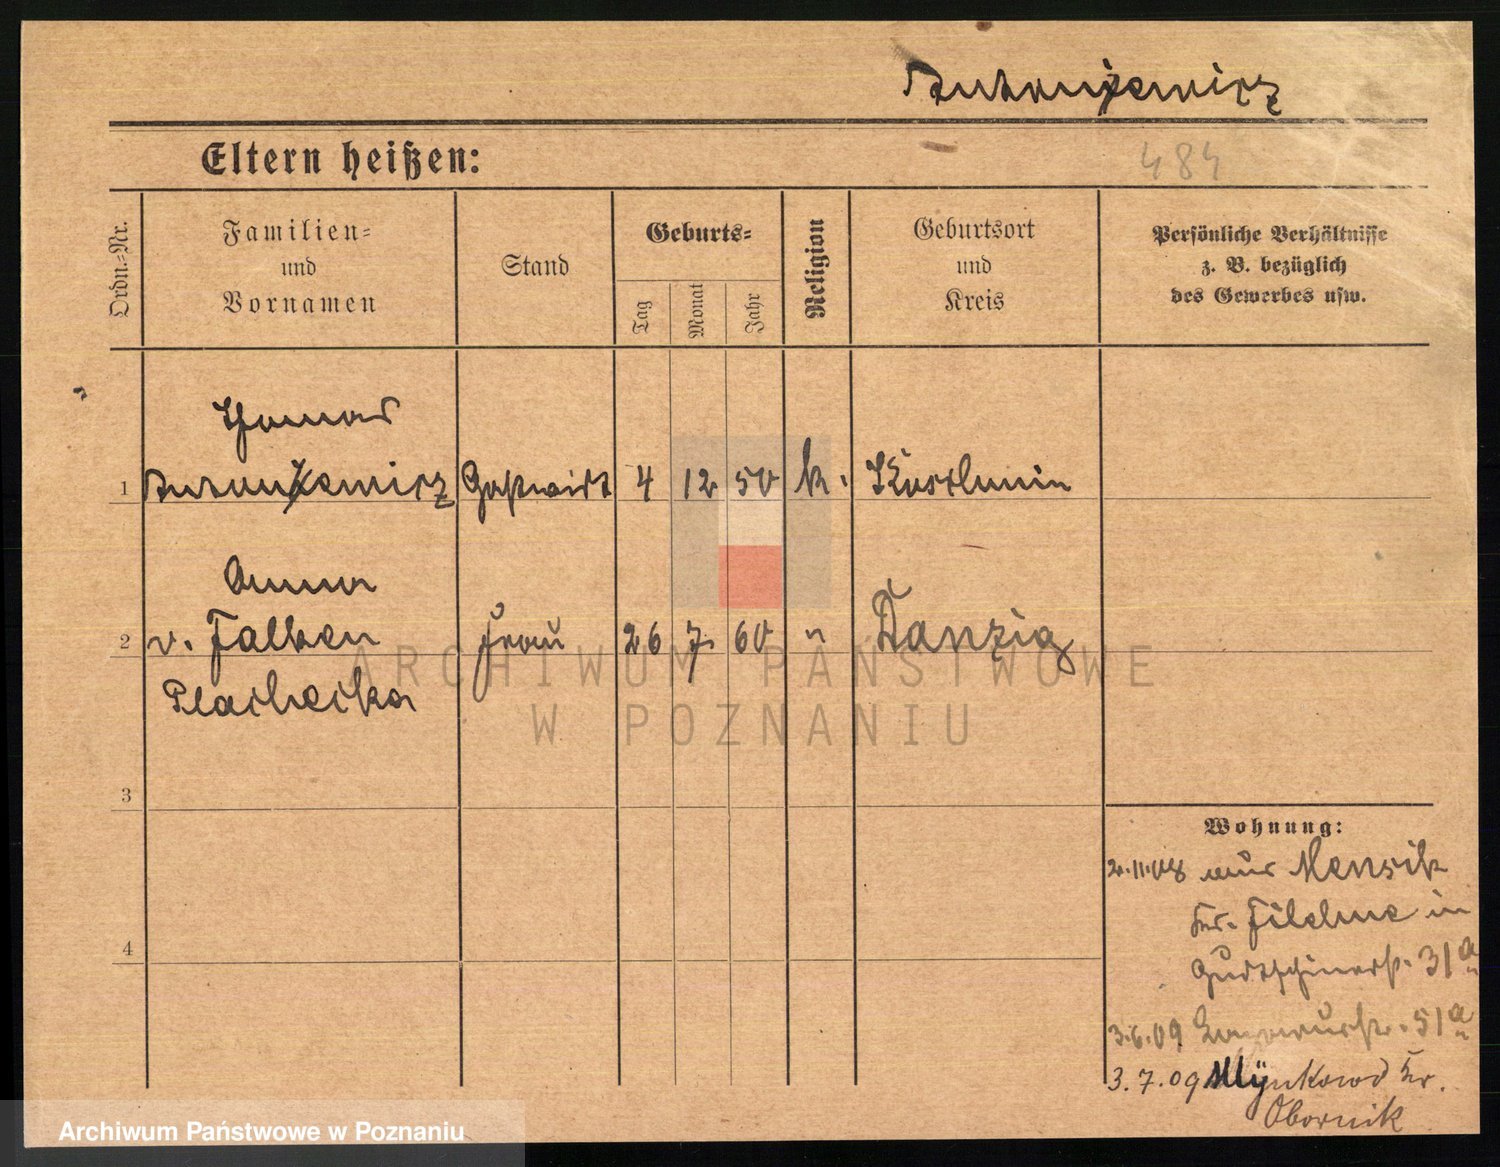 Antoniewicz
Eltern heißen:
484
Ordn.-Nr.
Familien-
und
Vornamen
Stand
Geburts-
Tag
Monat
Jahr
Religion
Geburtsort
und
Kreis
Persönliche Verhältnisse
z. B. bezüglich
des Gewerbes usw.
Thomas
1 Antoniewicz Gastwirt 4 12 50 k.
Anna
2 v. Falken Frau 26 7. 60 " Danzig
Plachecka
3
4
Wohnung:
2.11.08 aus
Kr. Filehne in
31a
3.6.09 51a
3.7.09 Mlynkowo Kr.
Obornik
ARCHIWUM PAŃSTWOWE
W POZNANIU
Archiwum Państwowe w Poznaniu